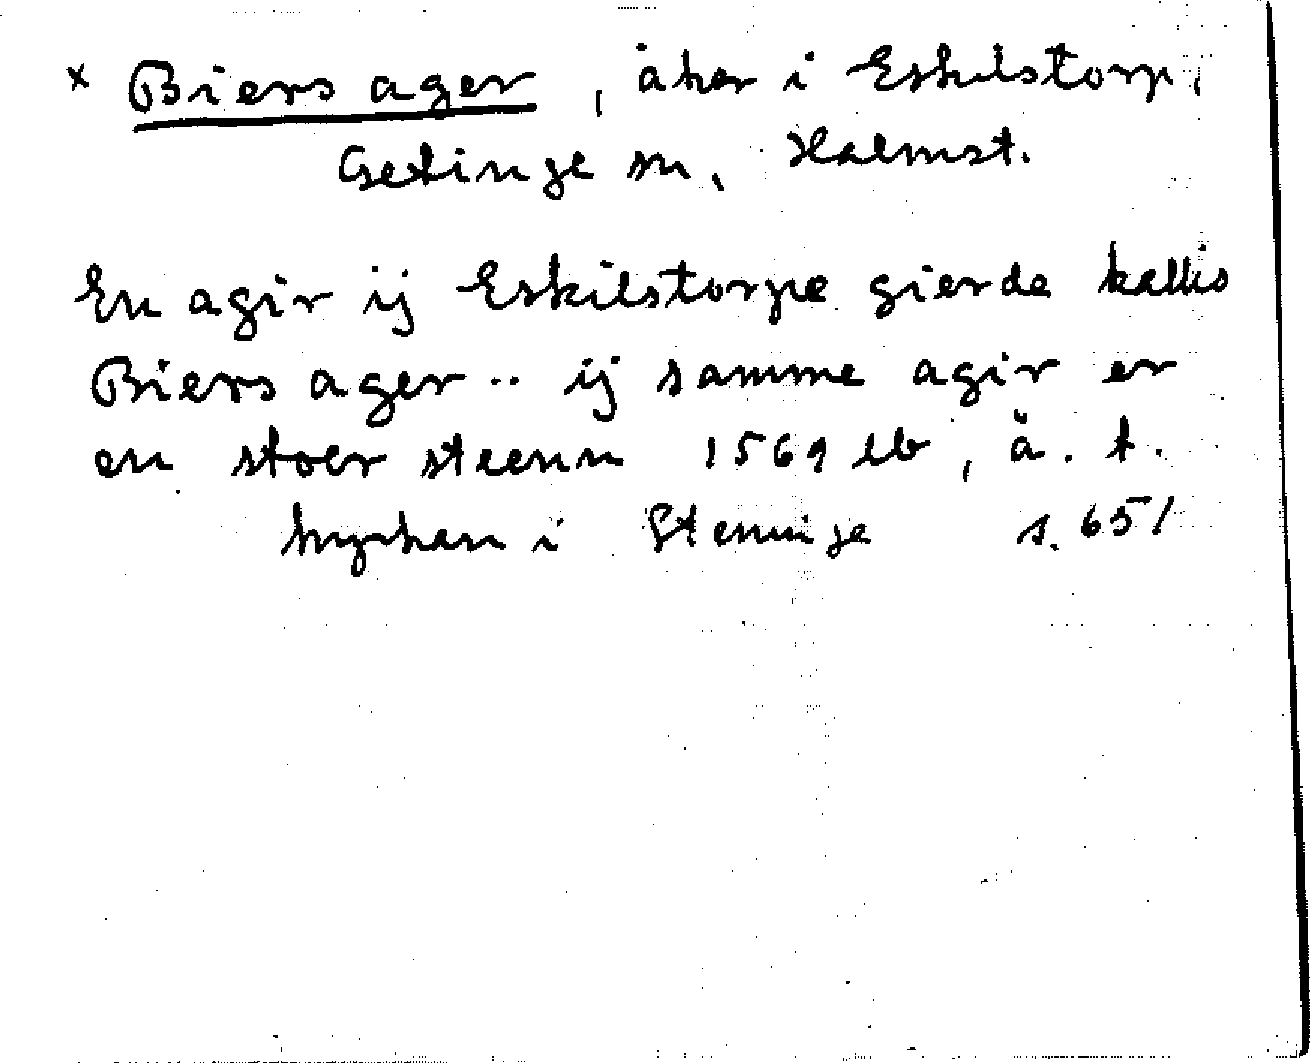 x Biers ager, åker i Eskilstorp,
Getinge sn, Halmst.
En agir ij Eskilstorpe gierde kallis
Biers ager .. ij samme agir er
en stoer steenn 1569 lb, å. t.
kyrkan i Steninge s. 651